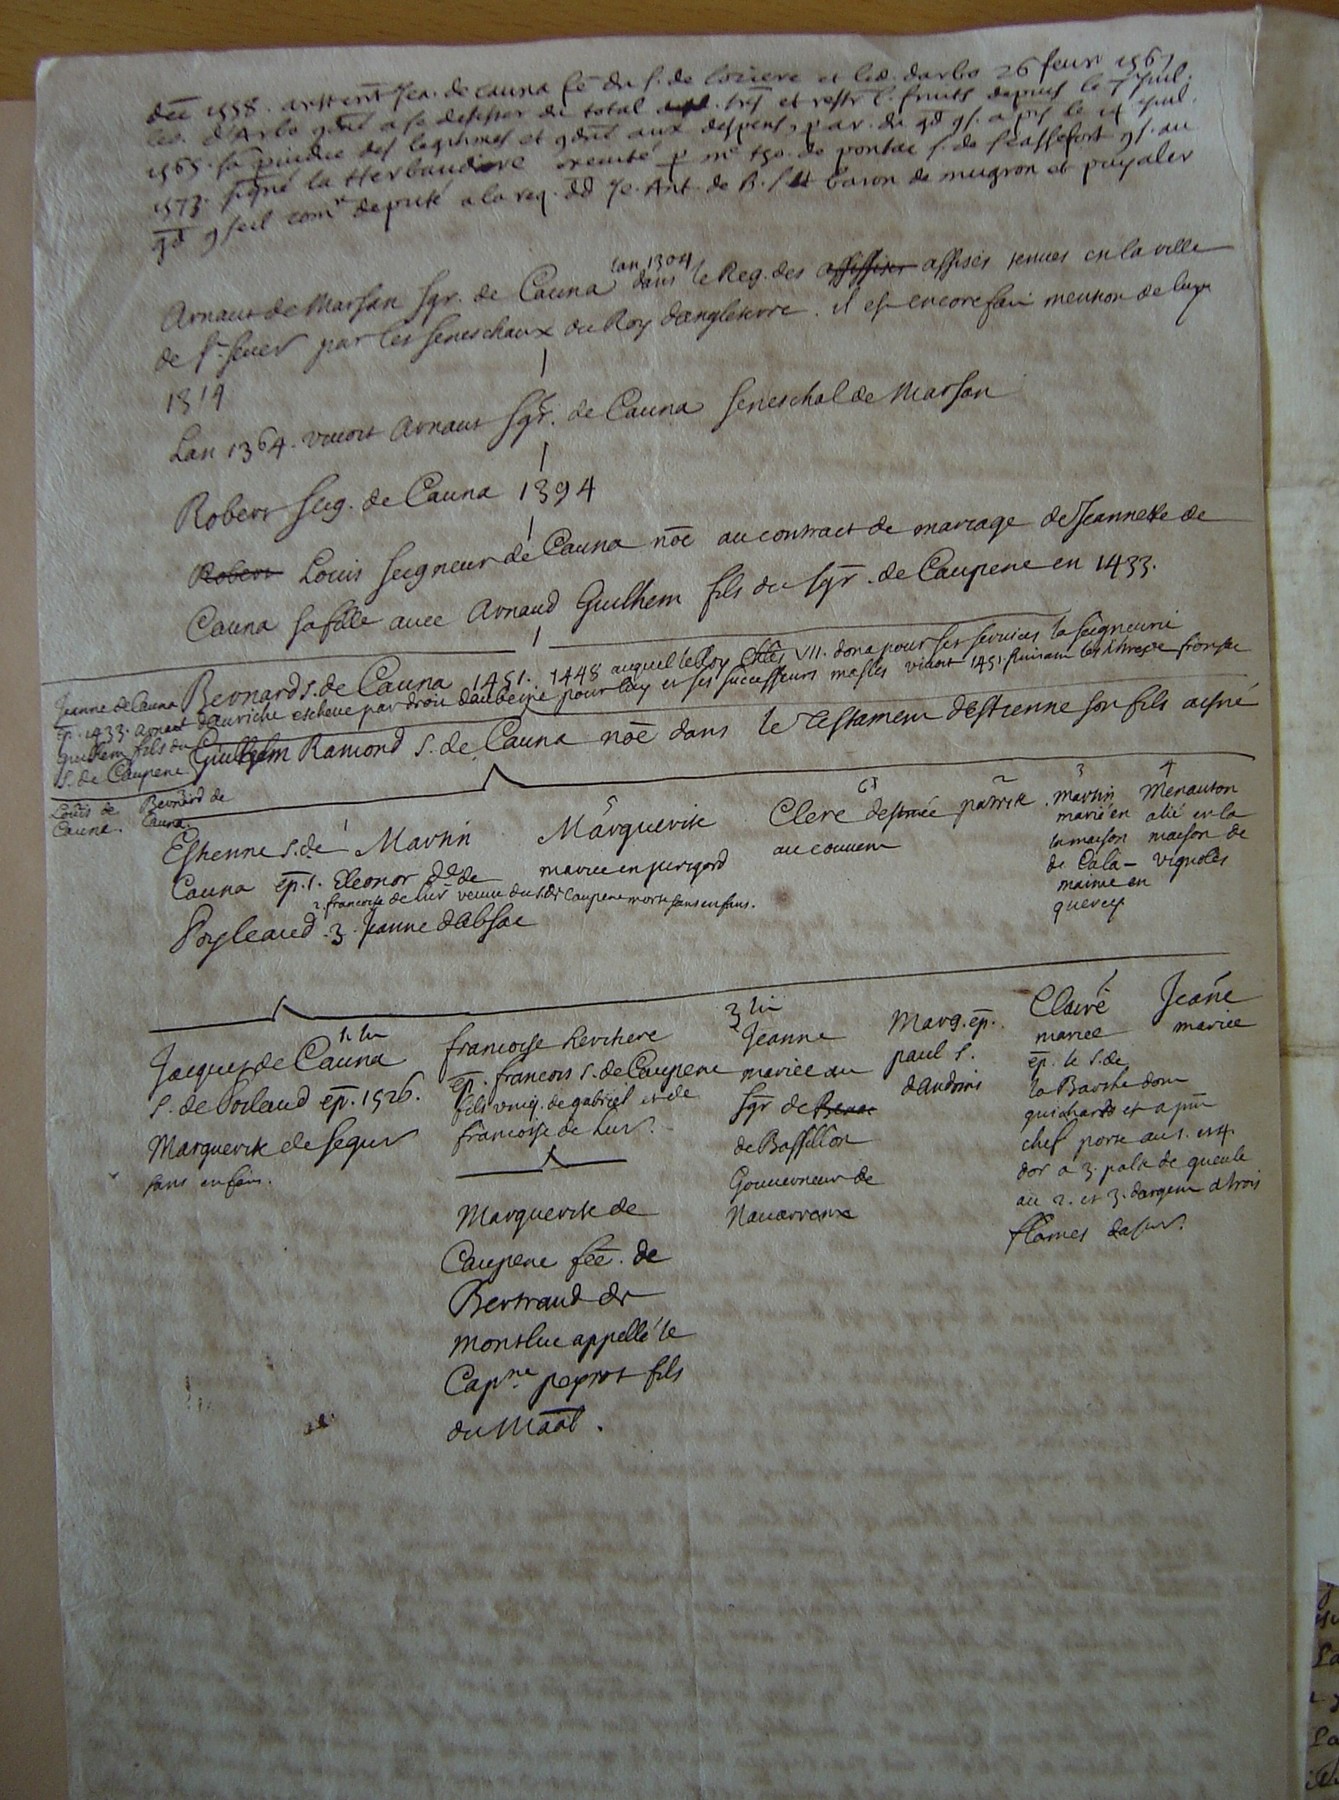 dec 1558. arrest ent Jea. de cauna fe du s. de loziere et led. darbo 26 feur 1567
led. d'Arbo a se desister du total et restr fruits depuis le 7 Juil.
1565. sa des legitimes et aux despens, par. du le 14 Juil.
1573. signé la Herbaudiere executé p me de pontac s. de scassefort au
gd com.re deputé a la req. dd Je. Ant. de B. baron de mugron et puyaler
lan 1304
Arnaut de Marsan sgr. de Cauna dans le Reg. des assises tenues en la ville
de St. sever par les seneschaux du Roy dangleterre. il est encore fait mention de luy
1314
Lan 1364. vivoit Arnaut sgr. de Cauna seneschal de Marsan
Robert seig. de Cauna 1394
Robert Louis seigneur de Cauna noe au contract de mariage de Jeannette de
Cauna sa fille avec Arnaud Guilhem fils du sgr. de Caupene en 1433.
Jeanne de Cauna
ep. 1433. Arnaut
Guilhem fils du
S. de Caupene.
Bernard s. de Cauna 1451. 1448 auquel le Roy Chles VII. dona pour ses services la seigneurie
dauriche escheue par droit daubeine pour luy et ses successeurs masles vivoit 1451.
Guilhem Ramond S. de Cauna noe dans le Testament destienne son fils aisné
Louis de
Cauna.
Bernard de
Cauna
Esthenne s. de
Cauna ep. 1. Eleonor de
2. francoise de lur veuve du s. de Caupene morte sans enfans.
Poyleaud. 3. Jeanne dabsac
1
Martin
5
Marguerite
mariee en perigord
6
Clere destinée
au couvent
2
patrik
3
martin
marié en
la maison
de Cala-
maine en
quercy
4
Menauton
alié en la
maison de
vignoles
Jacques de Cauna
S. de Poilaud ep. 1526.
Marguerite de segur
sans enfans.
francoise heritiere
ep. francois s. de Caupene
fils vniq. de gabriel et de
francoise de Lur.
Marguerite de
Caupene fee. de
Bertrand de
montluc appellé le
Capne. peyrot fils
du Maal.
3 lit
Jeanne
mariee au
sgr de Benac
de Bassillon
Gouverneur de
Navarrenx
Marg. ep.
paul s.
dandoins
Claire
mariee
ep. le s. de
la Barthe dom
guichard et a pnt
chef porte au 1. et 4.
dor a 3. pals de gueule
au 2. et 3. dargent a trois
flames dasur.
Jeane
mariee